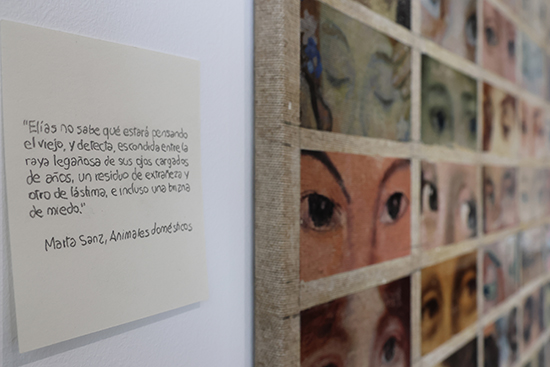 "Elías no sabe qué estará pensando
el viejo, y detecta, escondida entre la
raya legañosa de sus ojos cargados
de años, un residuo de extrañeza y
otro de lástima, e incluso una brizna
de miedo."
Marta Sanz, Animales domésticos